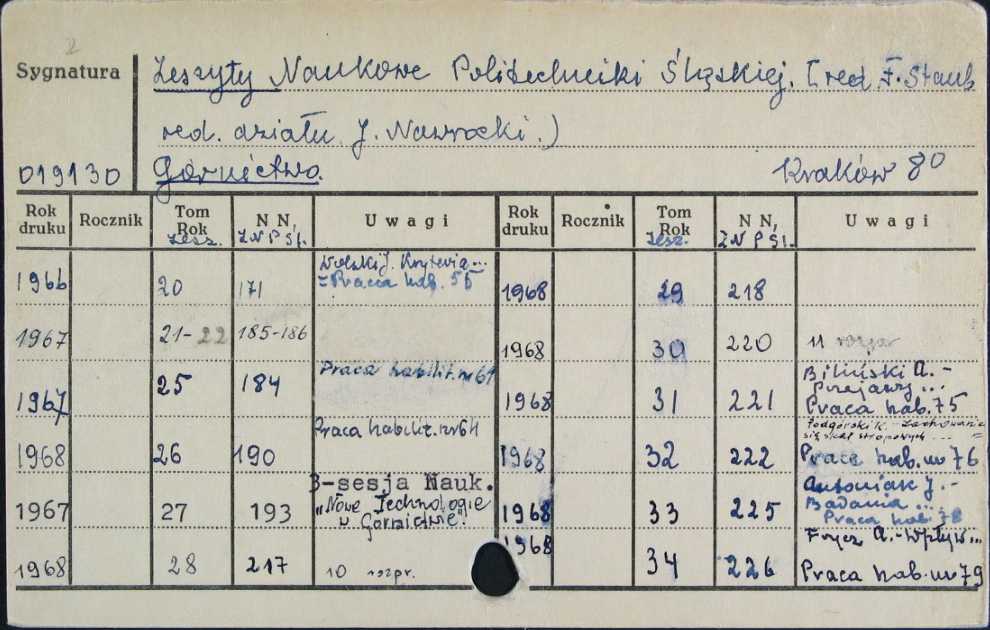 2
Sygnatura
Zeszyty Naukowe Politechniki Śląskiej. [red. F. Staub
red. działu J. Nawrocki.)
019130
Górnictwo.
Kraków 80
Rok druku Rocznik Tom Rok Zesz. N N, ZNPŚl. Uwagi Rok druku Rocznik Tom Rok Zesz. N N, ZNPŚl. Uwagi
1966 20 171 Wolski J. Kryteria...
= Praca hab. 55
1967 21-22 185-186
1967 25 184 Praca habilit. nr 61
1968 26 190 Praca habilit. nr 64
1967 27 193 3-sesja Nauk.
"Nowe Technologie
w Górnictwie."
1968 28 217 10 rozpr.
1968 29 218
1968 30 220 11 rozpr
1968 31 221 Biliński A. -
Przejawy ...
Praca hab. 75
1968 32 222 Podgórski K. - Zachowanie
się skał stropowych ... =
Praca hab. nr 76
1968 33 225 Antoniak J. -
Badania ...
Praca hab. 78
1968 34 226 Frycz A. - Wpływ...
Praca hab. nr 79